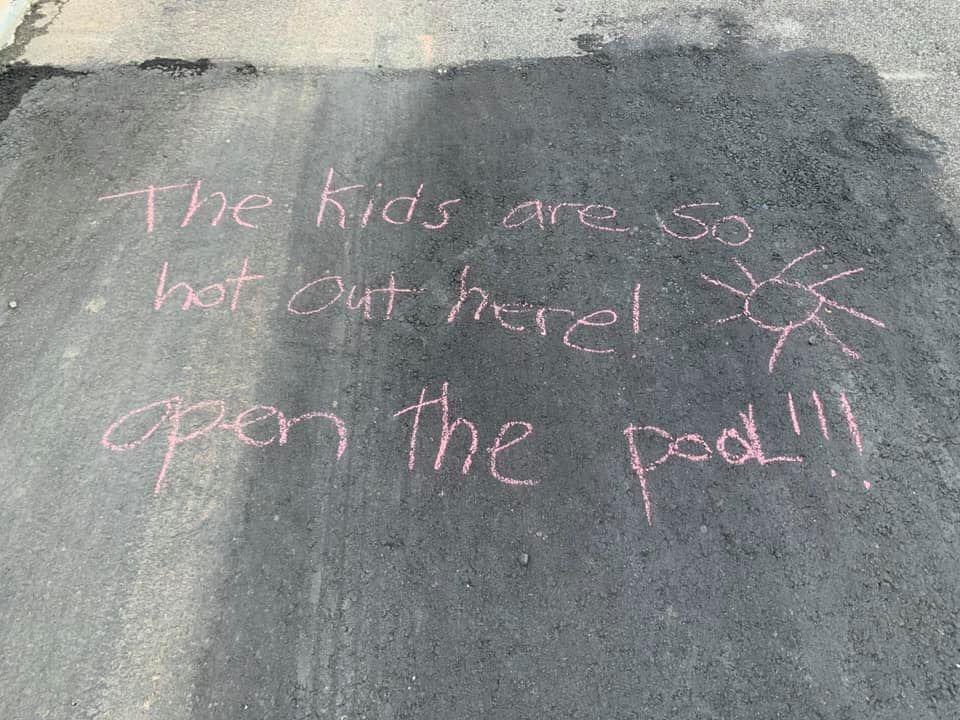 The kids are so
hot out here!
open the pool!!!